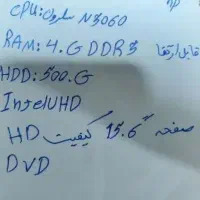 hp
CPU: سلرون N3060
RAM: 4.G DDR3 قابل ارتقا
HDD: 500.G
Intel UHD
صفحه 15.6" کیفیت HD
DVD